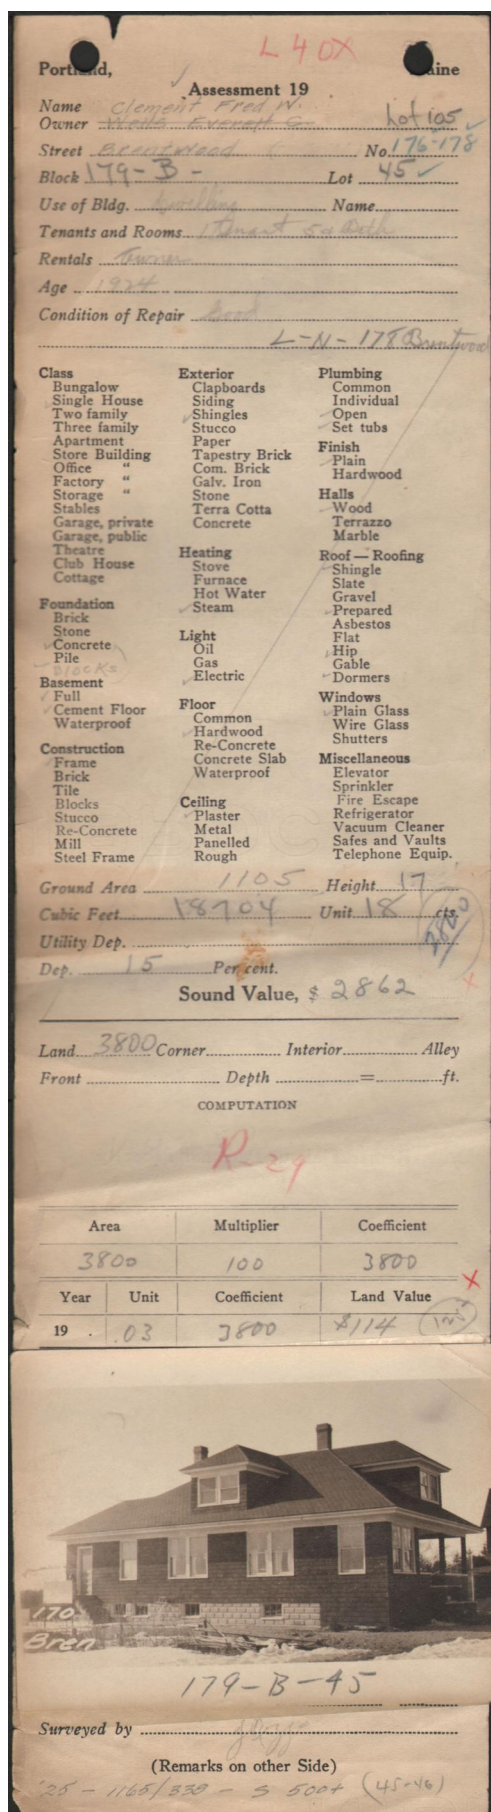 L 40X
Portland, Maine
Assessment 19
Name Clement Fred W.
Owner Wells Everett G Lot 105
Street Brentwood No. 176-178
Block 179-B- Lot 45
Use of Bldg. Dwelling Name
Tenants and Rooms 1 Tenant 5 & Bath
Rentals Owner
Age 1924
Condition of Repair Good
L-N-178 Brentwood
Class
Bungalow
Single House
Two family
Three family
Apartment
Store Building
Office "
Factory "
Storage "
Stables
Garage, private
Garage, public
Theatre
Club House
Cottage
Foundation
Brick
Stone
Concrete
Pile
Blocks
Basement
Full
Cement Floor
Waterproof
Construction
Frame
Brick
Tile
Blocks
Stucco
Re-Concrete
Mill
Steel Frame
Exterior
Clapboards
Siding
Shingles
Stucco
Paper
Tapestry Brick
Com. Brick
Galv. Iron
Stone
Terra Cotta
Concrete
Heating
Stove
Furnace
Hot Water
Steam
Light
Oil
Gas
Electric
Floor
Common
Hardwood
Re-Concrete
Concrete Slab
Waterproof
Ceiling
Plaster
Metal
Panelled
Rough
Plumbing
Common
Individual
Open
Set tubs
Finish
Plain
Hardwood
Halls
Wood
Terrazzo
Marble
Roof — Roofing
Shingle
Slate
Gravel
Prepared
Asbestos
Flat
Hip
Gable
Dormers
Windows
Plain Glass
Wire Glass
Shutters
Miscellaneous
Elevator
Sprinkler
Fire Escape
Refrigerator
Vacuum Cleaner
Safes and Vaults
Telephone Equip.
Ground Area 1105 Height 17
Cubic Feet 18704 Unit 18 cts.
2800
Utility Dep.
Dep. 15 Per cent.
Sound Value, $ 2862
Land 3800 Corner Interior Alley
Front Depth = ft.
COMPUTATION
R-29
Area Multiplier Coefficient
3800 100 3800
Year Unit Coefficient Land Value
19 . .03 3800 $114
170
Bren
179-B-45
Surveyed by
(Remarks on other Side)
'25 - 1165/338 - S 500+ (45-46)